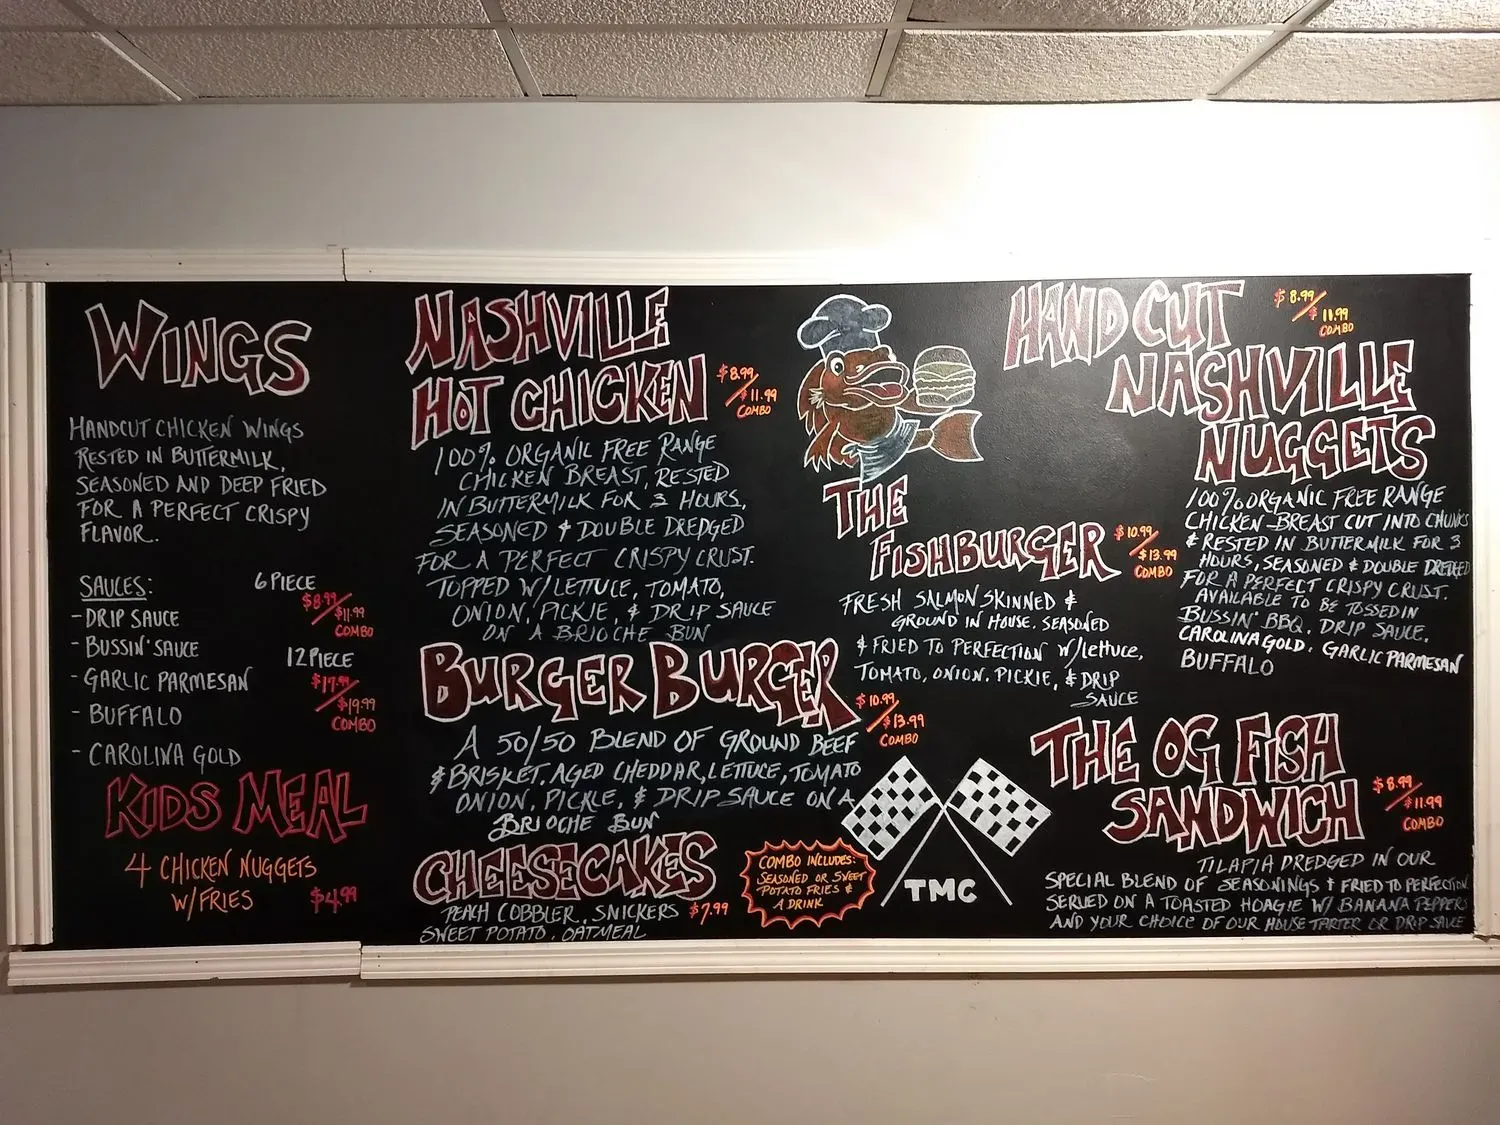 WINGS
HANDCUT CHICKEN WINGS
RESTED IN BUTTERMILK,
SEASONED AND DEEP FRIED
FOR A PERFECT CRISPY
FLAVOR.
SAUCES:
- DRIP SAUCE
- BUSSIN' SAUCE
- GARLIC PARMESAN
- BUFFALO
- CAROLINA GOLD
6 PIECE
$8.99/$11.99
COMBO
12 PIECE
$17.99/$19.99
COMBO
KIDS MEAL
4 CHICKEN NUGGETS
W/FRIES
$4.99
NASHVILLE
HOT CHICKEN
$8.99/$11.99
COMBO
100% ORGANIC FREE RANGE
CHICKEN BREAST, RESTED
IN BUTTERMILK FOR 3 HOURS,
SEASONED & DOUBLE DREDGED
FOR A PERFECT CRISPY CRUST.
TOPPED W/LETTUCE, TOMATO,
ONION, PICKIE, & DRIP SAUCE
ON A BRIOCHE BUN
BURGER BURGER
$10.99/$13.99
COMBO
A 50/50 BLEND OF GROUND BEEF
& BRISKET. AGED CHEDDAR, LETTUCE, TOMATO
ONION, PICKLE, & DRIP SAUCE ON A
BRIOCHE BUN
CHEESECAKES
PEACH COBBLER, SNICKERS $7.99
SWEET POTATO, OATMEAL
COMBO INCLUDES:
SEASONED OR SWEET
POTATO FRIES &
A DRINK
THE
FISHBURGER
$10.99/$13.99
COMBO
FRESH SALMON SKINNED &
GROUND IN HOUSE. SEASONED
& FRIED TO PERFECTION W/LETTUCE,
TOMATO, ONION, PICKIE, & DRIP
SAUCE
TMC
HAND CUT
NASHVILLE
NUGGETS
$8.99/$11.99
COMBO
100% ORGANIC FREE RANGE
CHICKEN-BREAST CUT INTO CHUNKS
& RESTED IN BUTTERMILK FOR 3
HOURS, SEASONED & DOUBLE DREDGED
FOR A PERFECT CRISPY CRUST.
AVAILABLE TO BE TOSSED IN
BUSSIN' BBQ, DRIP SAUCE,
CAROLINA GOLD, GARLIC PARMESAN
BUFFALO
THE OG FISH
SANDWICH
$8.99/$11.99
COMBO
TILAPIA DREDGED IN OUR
SPECIAL BLEND OF SEASONINGS & FRIED TO PERFECTION
SERVED ON A TOASTED HOAGIE W/ BANANA PEPPERS
AND YOUR CHOICE OF OUR HOUSE TARTER OR DRIP SAUCE